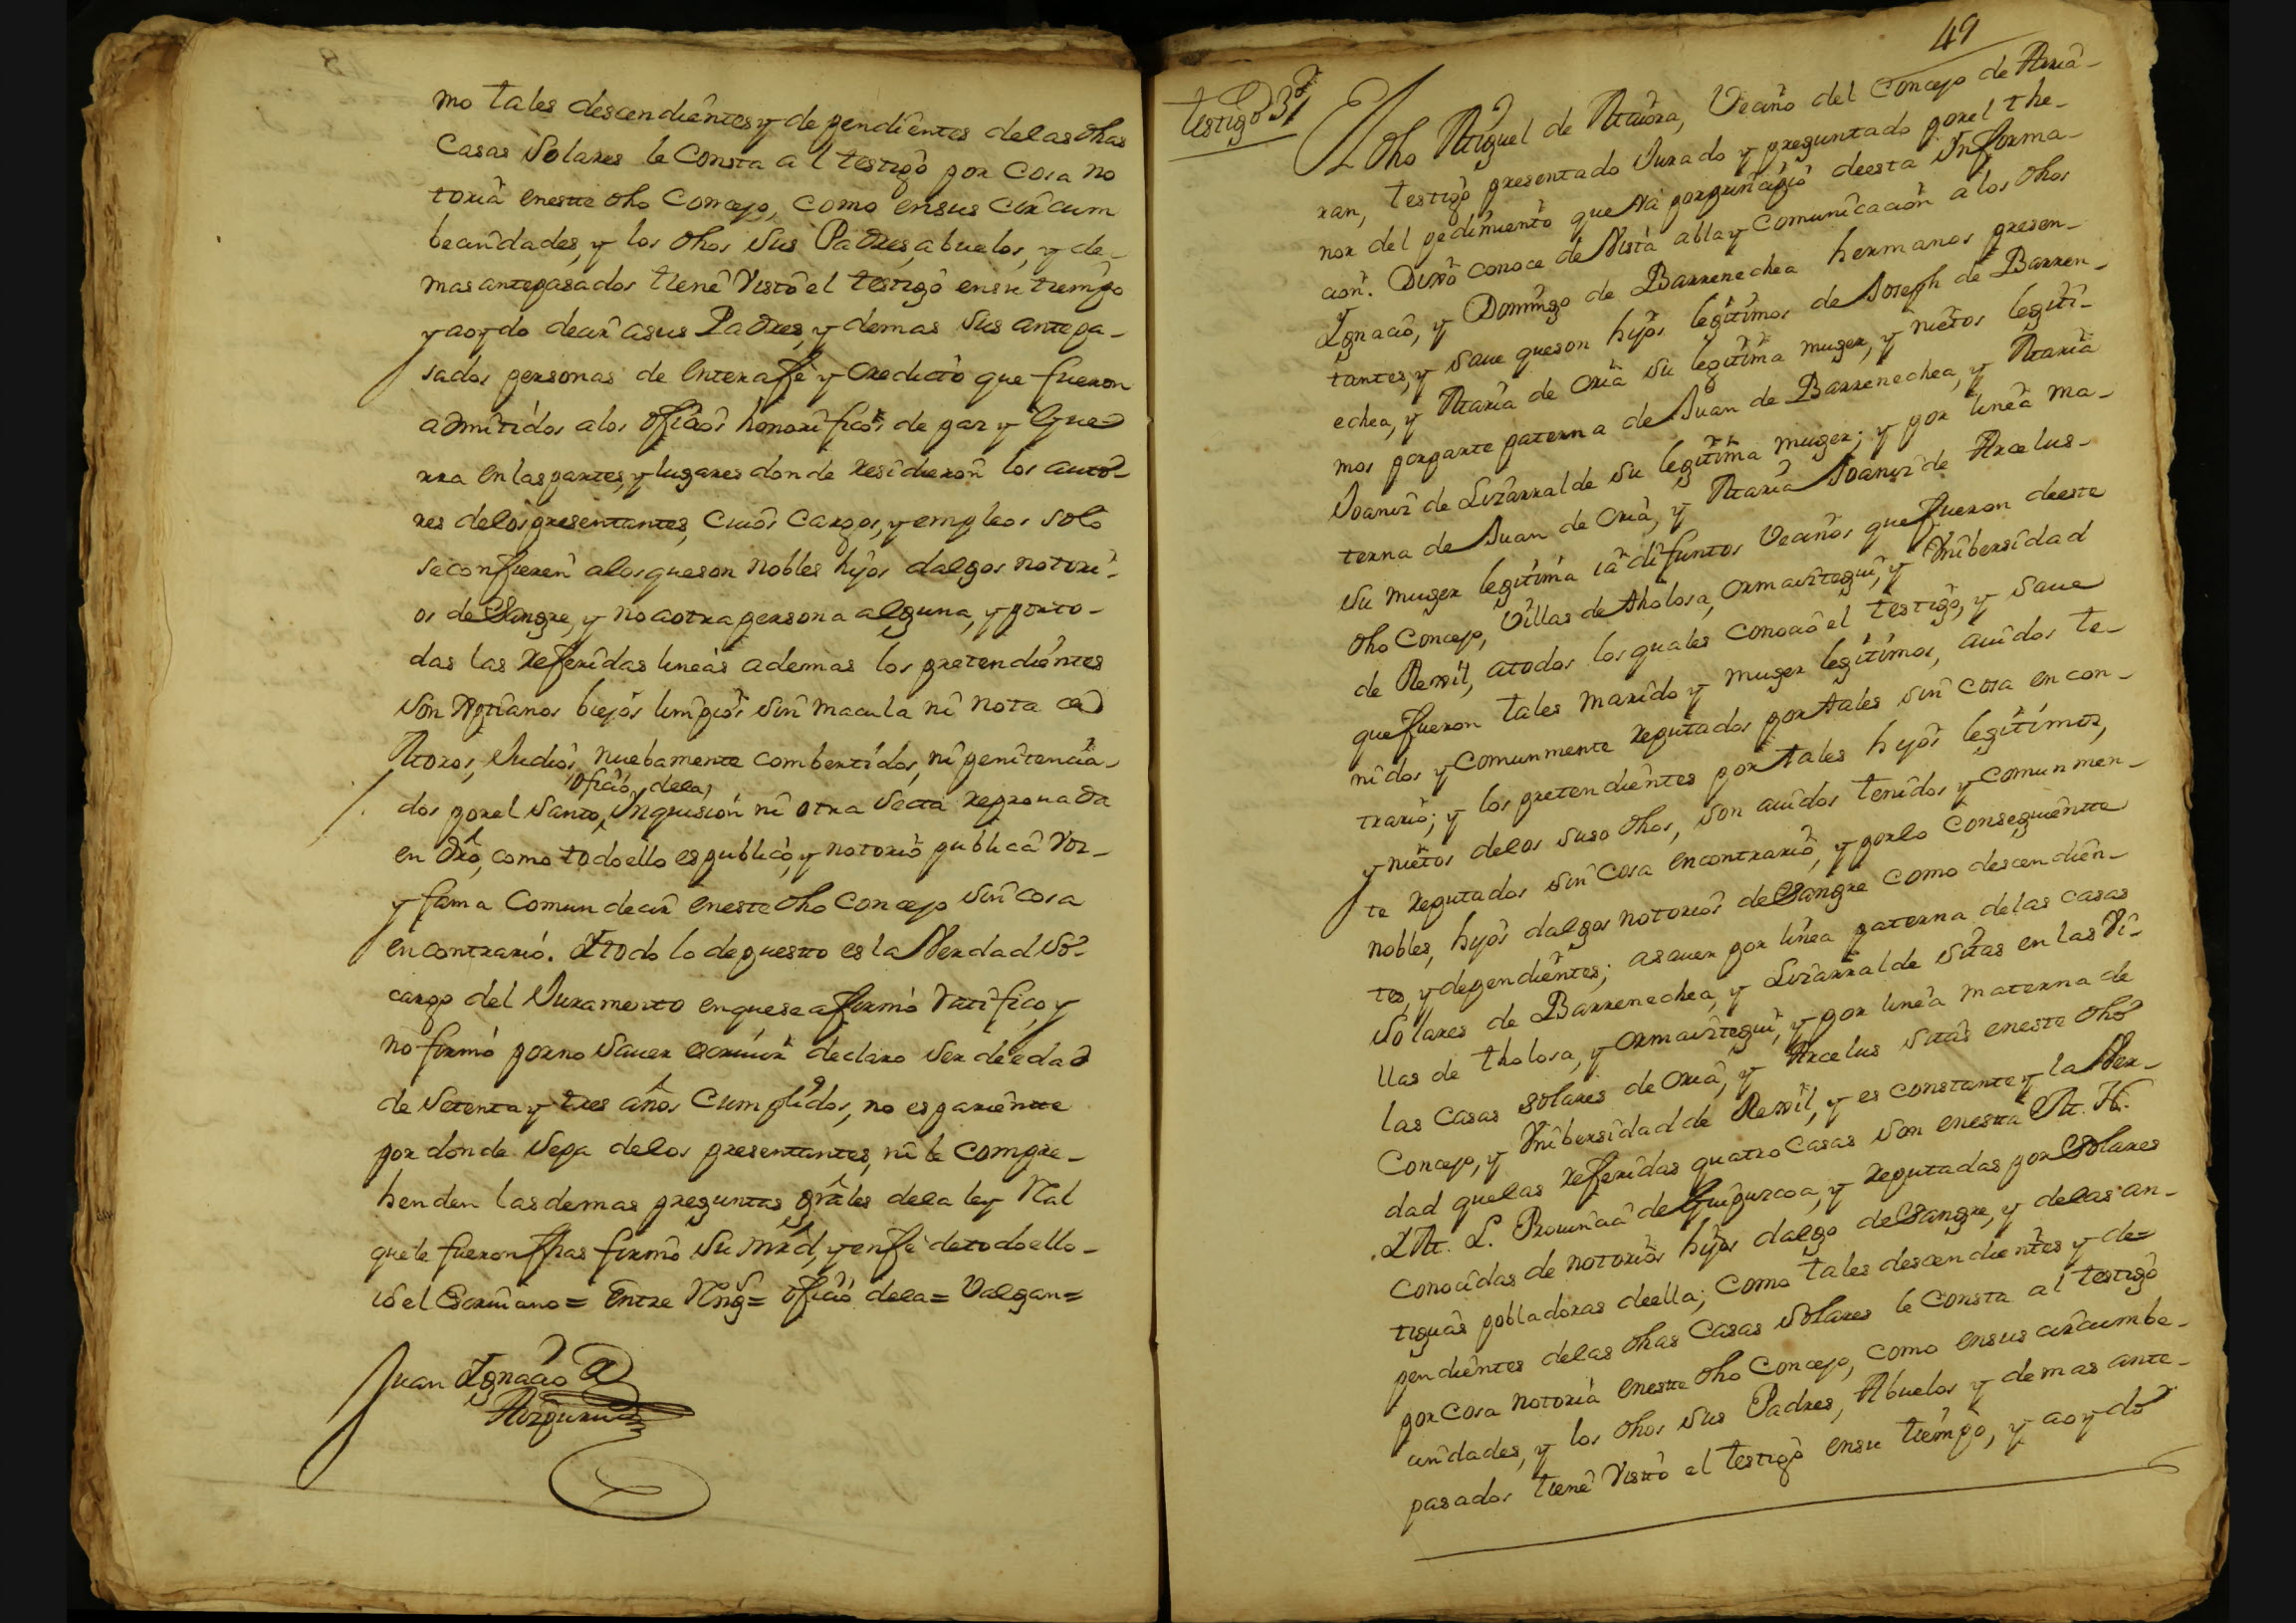 mo tales descendientes y dependientes delas dhas
Casas Solares le Consta al testigo por Cosa no
toria eneste dho Concejo, como ensus Circum
becindades, y los dhos sus Padres, abuelos, y de-
mas antepasados tiene Visto el testigo ensu tiempo
y aoydo decir asus Padres, y demas sus antepa-
sados personas de entera fe y credicto que fueron
admitidos alos oficios honorificos de paz y Gue-
rra en las partes, y lugares donde residieron los auto-
res delos presentantes, Cuios Cargos, y empleos solo
se confieren alos queson nobles hijos dalgos notori-
os de Sangre, y no aotra persona alguna, y porto-
das las referidas lineas ademas los pretendientes
son Xptianos biejos limpios sin macula ni nota de
Moros, Judios, nuebamente combertidos, ni penitencia-
oficio, dela,
dos porel Santo, Inquisicion ni otra Secta reprouada
en dro, como todo ello es publico, y notorio publica voz-
y fama Comun decir eneste dho Concejo sin cosa
en contrario. Y todo lo depuesto es la Verdad so-
cargo del Juramento en que se afirmó ratifico, y
no firmó porno Sauer escriuir declaro ser de edad
de setenta y tres años Cumplidos, no es pariente
por donde sepa delos presentantes, ni le compre-
henden las demas preguntas grales dela ley Real
que le fueron fhas firmó su mrd, y enfe de todo ello-
io el Escriuano = Entre Rengs = oficio dela = Valgan =
Juan Ignacio de
Aizpurua
49
testigo 31
El dho Miguel de Muxica, Vecino del Concejo de Arria-
ran, testigo presentado Jurado y preguntado porel the-
nor del pedimiento que va por principio de esta Informa-
cion. Dixo conoce de Vista abla y Comunicacion a los dhos
Ignacio, y Domingo de Barrenechea hermanos presen-
tantes, y saue queson hijos legitimos de Joseph de Barren-
echea, y Maria de Oria su legitima muger, y nietos legiti-
mos porparte paterna de Juan de Barrenechea, y Maria
Joaniz de Lizarralde su legitima muger; y por linea ma-
terna de Juan de Oria, y Maria Joaniz de Arcelus-
su muger legitima iá difuntos Vecinos que fueron deeste
dho Concejo, Villas de tholosa, Ormaiztegui, y Vnibersidad
de Rexil, atodos los quales conocio el testigo, y saue
que fueron tales marido y muger legitimos, auidos te-
nidos y Comunmente reputados por tales sin cosa en con-
trario; y los pretendientes por tales hijos legitimos,
y nietos delos suso dhos, son auidos tenidos y comunmen-
te reputados sin Cosa encontrario, y porlo Consequiente
nobles, hijos dalgos notorios de Sangre como descendien-
tes, y dependientes; asauer por linea paterna delas casas
solares de Barrenechea, y Lizarralde sitas en las Vi-
llas de tholosa, y Ormaiztegui, y por linea materna de
las casas solares de Oria, y Arcelus sitas eneste dho
Concejo, y Vnibersidad de Rexil, y es constante y la Ver-
dad quelas referidas quatro Casas son enesta M. N.
y M. L. Prouincia de Guipuzcoa, y reputadas por Solares
Conocidas de notorios hijos dalgo de Sangre, y delas an-
tiguas pobladoras deella; como tales descendientes y de=
pendientes delas dhas Casas Solares le Consta al testigo
por Cosa notoria eneste dho Concejo, como ensus circumbe-
cindades, y los dhos sus Padres, Abuelos y demas ante-
pasados tiene Visto el testigo ensu tiempo, y aoydo